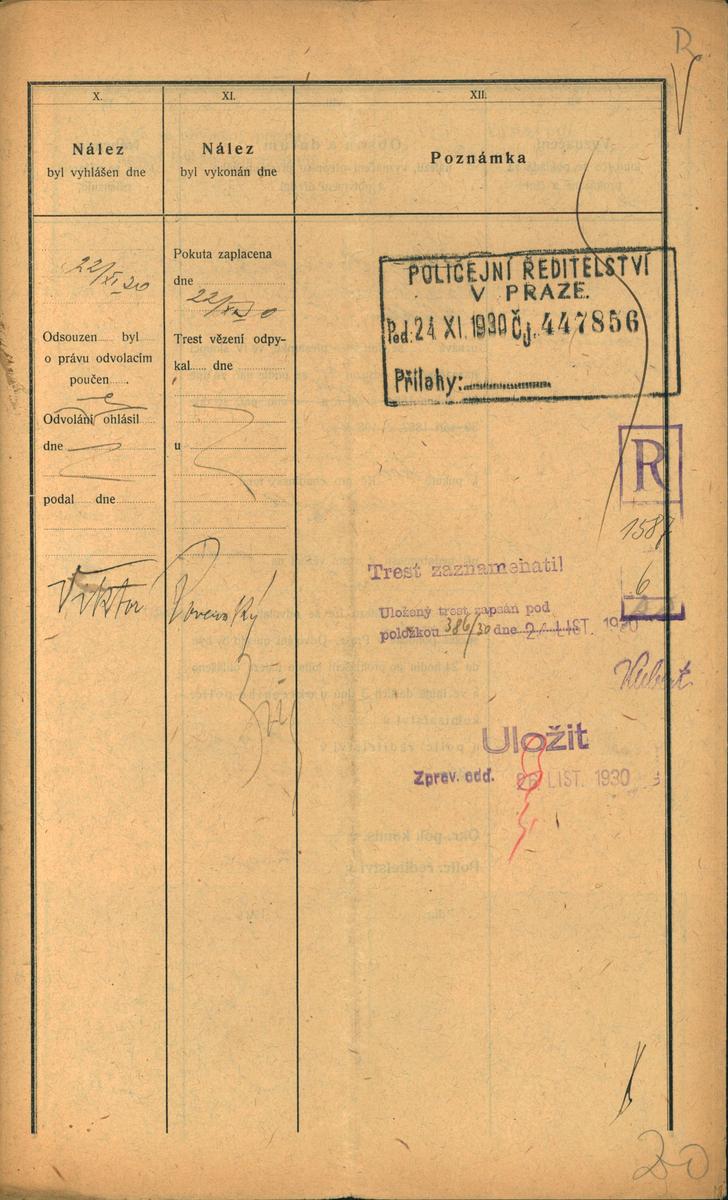 R
X.
Nález
byl vyhlášen dne
22/XI 30
Odsouzen byl
o právu odvolacím
poučen
Odvolání ohlásil
dne
podal dne
Viktor
XI.
Nález
byl vykonán dne
Pokuta zaplacena
dne
22/XI 30
Trest vězení odpy-
kal dne
u
XII.
Poznámka
POLICEJNÍ ŘEDITELSTVÍ
V PRAZE.
Pod: 24 XI. 1930 Čj. 447856
Přílohy:
R
1587
6
Trest zaznamenati!
Uložený trest zapsán pod
položkou 386/30 dne 24 LIST. 1930
Uložit
Zprav. odd. 26 LIST. 1930
20